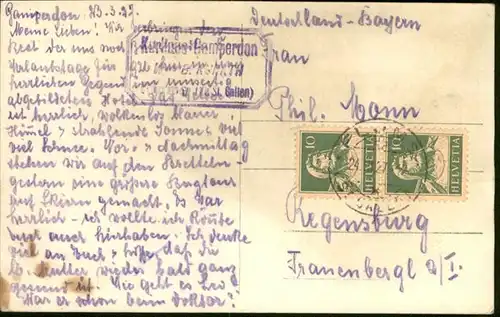 Gamperdon, 13.3.27.
Meine Lieben! Wir verbringen den
Rest der uns noch
Urlaubstage
herrlichen Gegend im umseitig
abgebildeten Hotel. Das Wetter
ist herrlich, wolkenlos blauer
Himmel & strahlende Sonne & viel
viel Schnee. Vor- & Nachmittag
stehen wir auf den Bretteln.
gestern eine größere
auf Skiern gemacht, es war
herrlich - ich wollte ich könnte
Euch auch hierhaben. Ich denke
viel an Euch & hoffe, daß die
lb. Mutter wieder bald ganz
gesund ist. Wie geht es
War er schon beim Doktor?
Kurhaus Gamperdon
(St. Gallen)
Deutschland-Bayern
Frau
Phil. Monn
Regensburg
Frauenbergl 2/I.
10
HELVETIA
10
HELVETIA